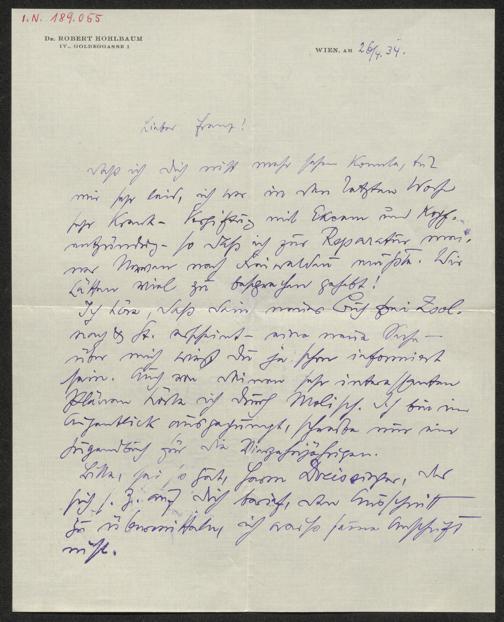 I.N. 189.055
Dr. ROBERT HOHLBAUM
IV., GOLDEGGASSE 1
WIEN, AM 26/4. 34.
Lieber Franz!
Daß ich Dich nicht mehr sehen konnte, tut
mir sehr leid, ich war in der letzten Woche
sehr krank – Vergiftung mit Ekzem und
entzündung – so daß ich zur Reparatur mei-
ner Nerven nach mußte. Wir
hätten viel zu besprechen gehabt!
Ich höre, daß Dein neues Buch bei Zsol-
nay erscheint – eine neue Sache –
über mich wirst Du ja schon informiert
sein. Auch von Deinen sehr interessanten
Plänen hörte ich durch Molisch. Ich bin im
Augenblick ausgepumpt, schreibe nur ein
Jugendbuch für die Vierzehnjährigen.
Bitte, sei so gut, Herrn Dreissinger, der
sich s. Z. auf Dich berief, den Ausschnitt
zu übermitteln, ich weiß seine Anschrift
nicht.